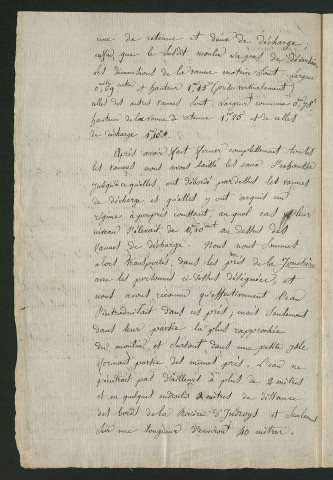 une de retenue et deux de décharge,
enfin que le susdit moulin n'a pas de déversoir
les dimensions de la vanne motrice sont: largeur
0,69 et hauteur 1,45 (prise verticalement)
celles des autres vannes sont: largeur commune 0,78
hauteur de la vanne de retenue 1,26 et de celles
de décharge
Après avoir fait fermer complettement toutes
les vannes nous avons laissé les eaux s'épandre
jusqu'à ce qu'elles, ont débordé par dessus les vannes
de décharge et qu'elles y ont acquis un
régime à peu près constant, auquel cas leur
niveau s'élevait de au dessus des
vannes de décharge. Nous nous sommes
alors transportés dans les prés de la Jonchère
avec les personnes ci-dessus désignées, et
nous avons reconnu qu'effectivement l'eau
s'introduisait dans ces prés; mais seulement
dans leur partie la plus rapprochée
du moulin, et surtout dans une petite isle
formant partie des mêmes prés. L'eau ne
pénétrait pas d'ailleurs à plus de 2 mètres
et en quelques endroits 3 mètres de distance
des bords de la Rivière d'Indroys et seulement
sur une longueur d'environ 40 mètres.